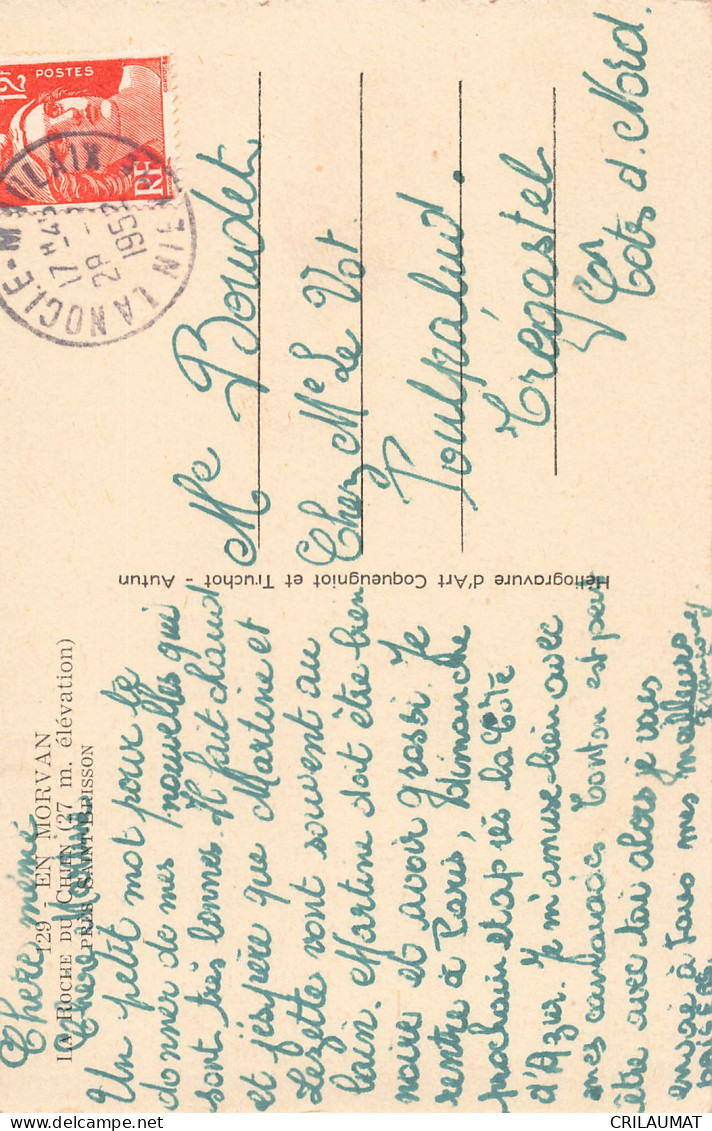 129 - EN MORVAN
LA ROCHE DU CHIEN (27 m. élévation)
PRÈS SAINT-BRISSON
Chere mémé
Chere
Un petit mot pour te
donner de mes nouvelles qui
sont très bonnes. Il fait chaud
et j'espère que Martine et
Lezette vont souvent au
bain. Martine doit être bien
noire et avoir grossi. Je
rentre à Paris, Dimanche
prochain et après la Côte
d'Azur. Je m'amuse bien avec
mes camarades Tonton est peut
être avec toi alors je vais
envoie à Tous mes meilleurs
baisers
Héliogravure d'Art Coqueugniot et Truchot - Autun
POSTES
12F
RF
LANOCLE-MAULAIX
17H45
28
1952
Me Boudet
Chez Me Le Vot
Poulpalud.
Trégastel
Cotes d. Nord.
delcampe.net
CRILAUMAT